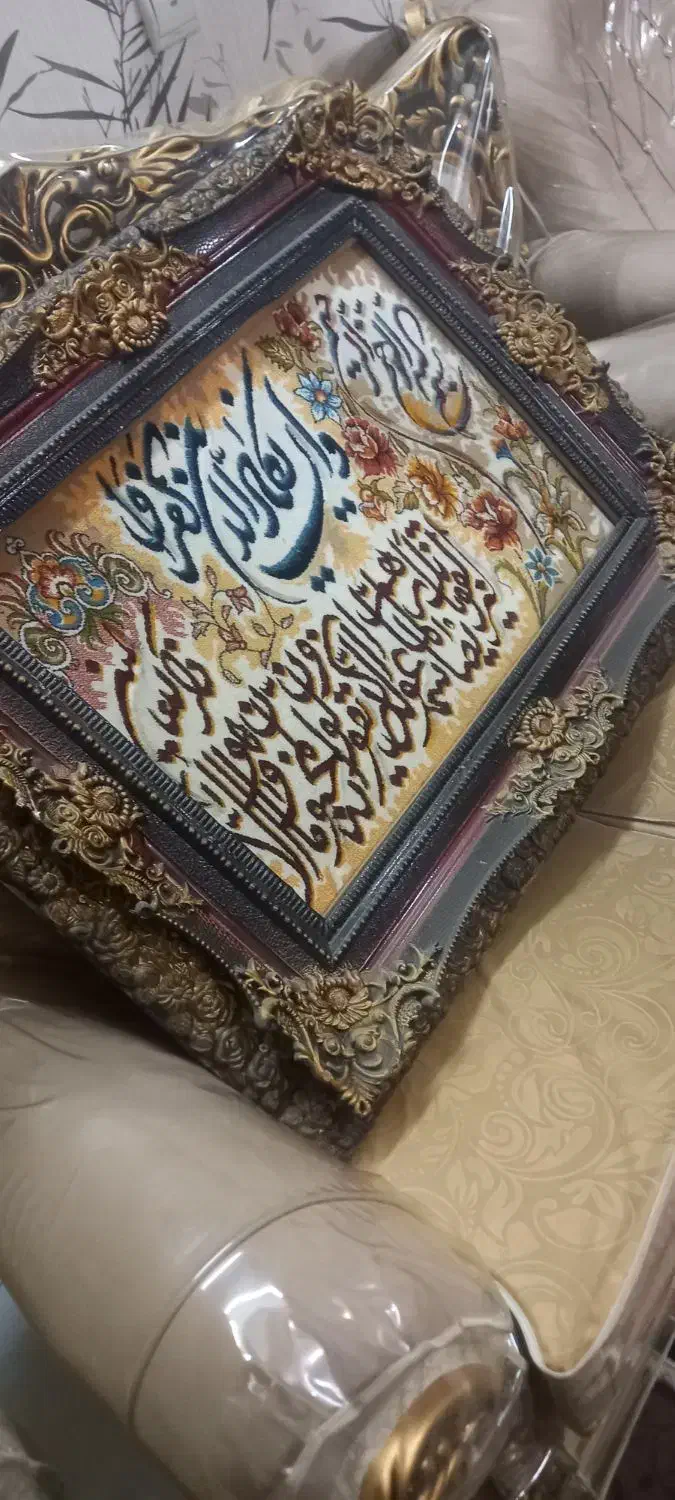 بسم الله الرحمن الرحیم
وان یکاد الذین کفروا
لیزلقونک بابصارهم لما سمعوا الذکر و یقولون انه لمجنون و ما هو الا
ذکر للعالمین